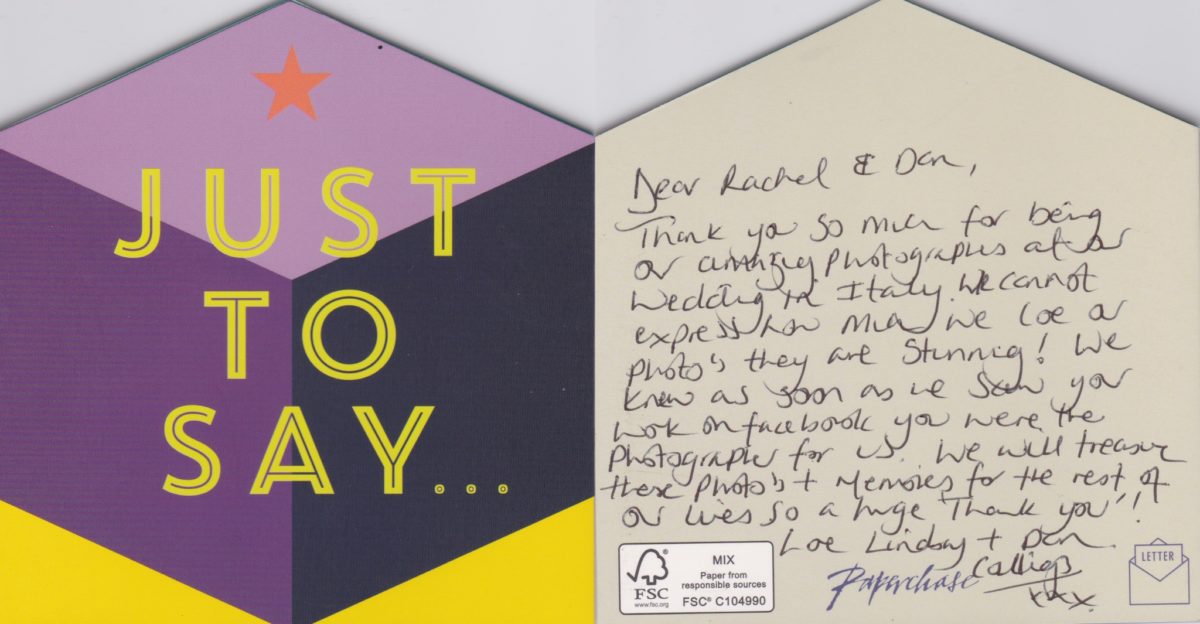 JUST
TO
SAY...
Dear Rachel & Dan,
Thank you so much for being
our amazing photographers at our
wedding in Italy. We cannot
express how much we love our
photo's they are stunning! We
knew as soon as we saw your
work on facebook you were the
photographer for us. We will treasure
these photo's + memories for the rest of
our lives so a huge "Thank you"!!
Love Lindsay + Dan
xxx
FSC
www.fsc.org
MIX
Paper from
responsible sources
FSC® C104990
Paperchase
LETTER